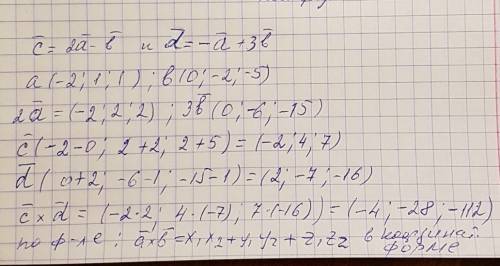 c̅ = 2a̅ - b̅ и d̅ = -a̅ + 3b̅
a(-2; 1; 1); b(0; -2; -5)
2a̅ = (-2; 2; 2); 3b̅(0; -6; -15)
c̅(-2-0; 2+2; 2+5) = (-2; 4; 7)
d̅(0+2; -6-1; -15-1) = (2; -7; -16)
c̅ × d̅ = (-2·2; 4·(-7); 7·(-16)) = (-4; -28; -112)
по ф-ле: a̅×b̅ = x₁x₂ + y₁y₂ + z₁z₂ в координат. форме